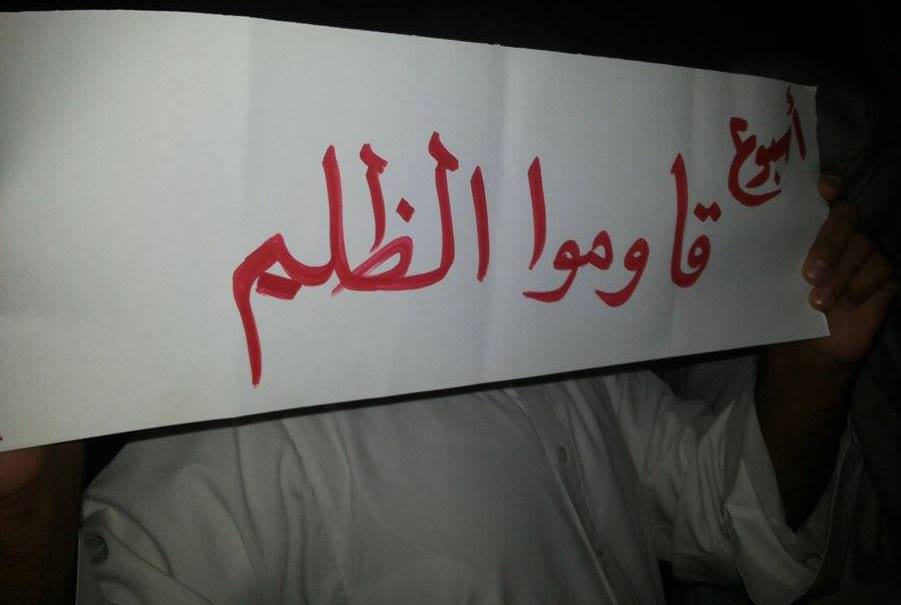 أسبوع
قاوموا الظلم